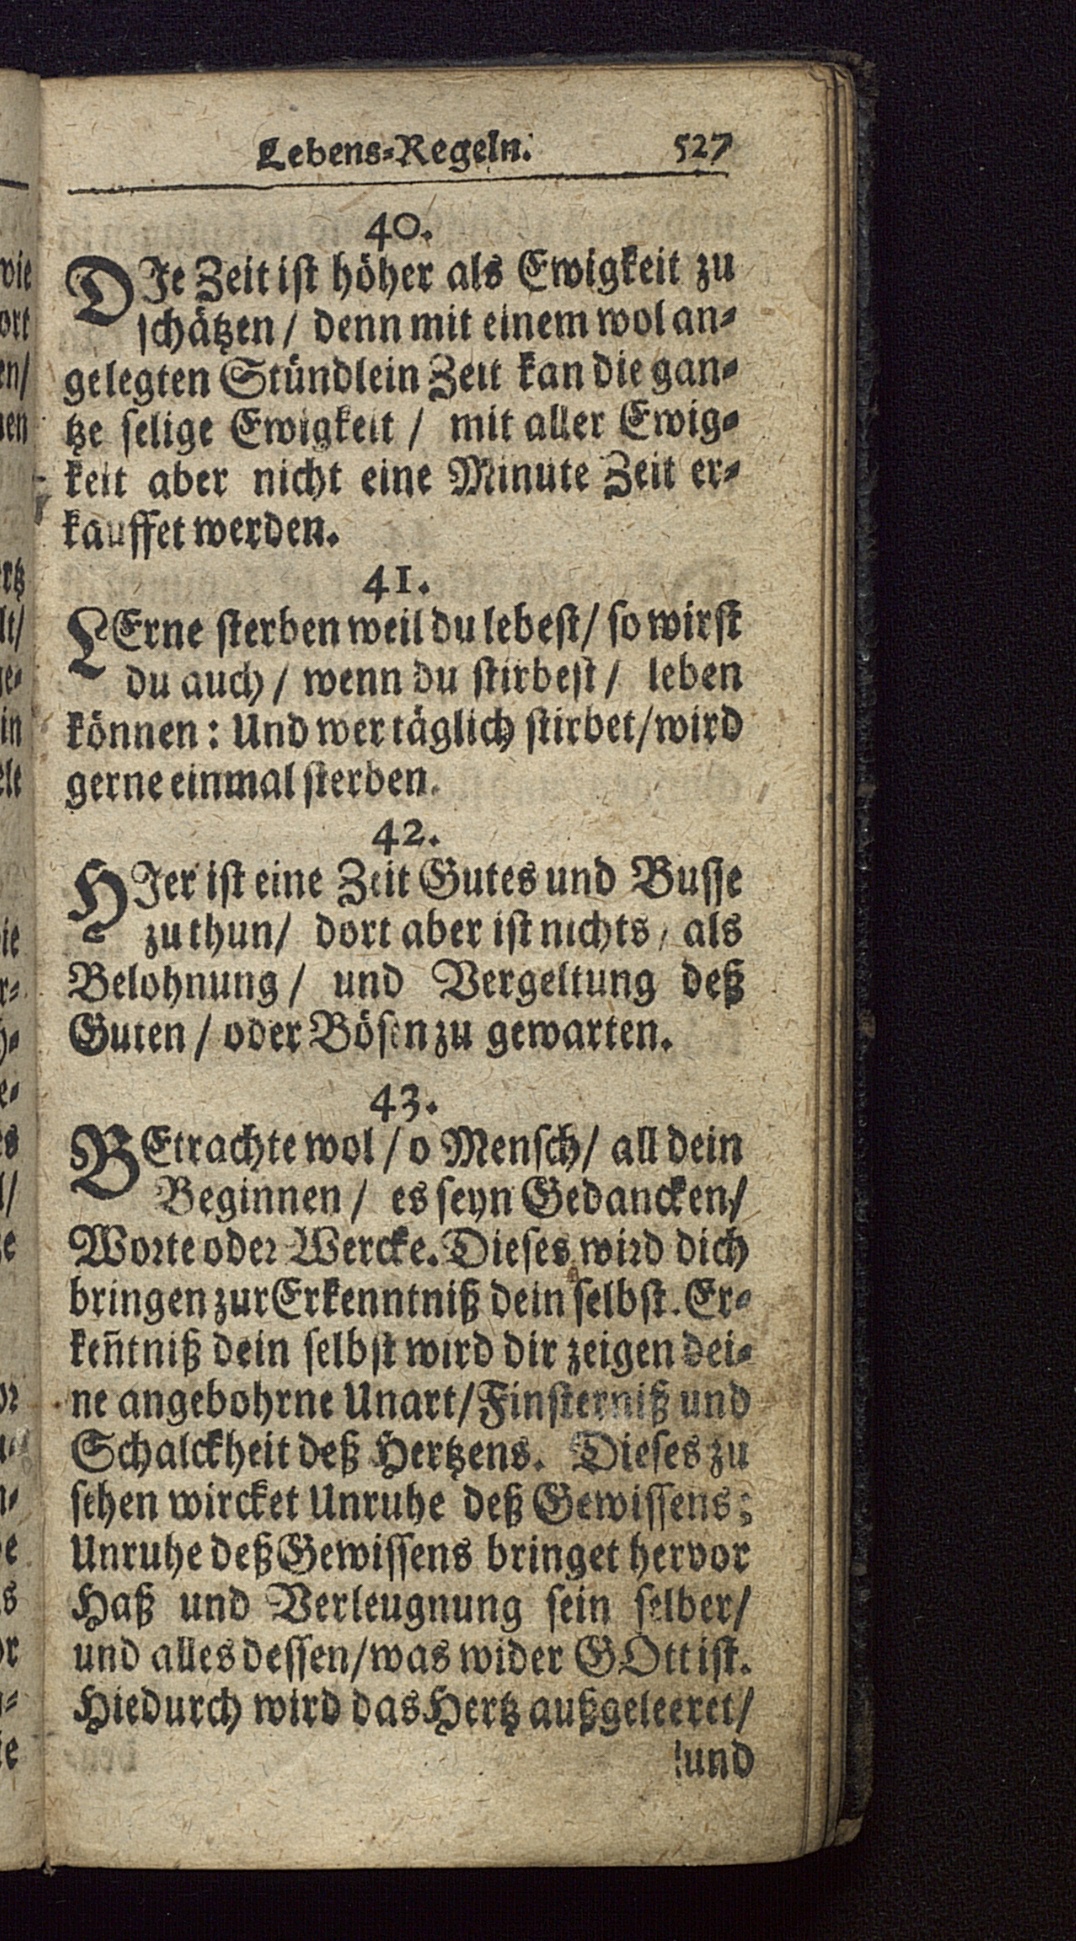 Lebens-Regeln. 527
40.
DIe Zeit ist höher als Ewigkeit zu
schätzen / denn mit einem wol an-
gelegten Stündlein Zeit kan die gan-
tze selige Ewigkeit / mit aller Ewig-
keit aber nicht eine Minute Zeit er-
kauffet werden.
41.
LErne sterben weil du lebest / so wirst
du auch / wenn du stirbest / leben
können: Und wer täglich stirbet / wird
gerne einmal sterben.
42.
HIer ist eine Zeit Gutes und Busse
zu thun / dort aber ist nichts / als
Belohnung / und Vergeltung deß
Guten / oder Bösen zu gewarten.
43.
BEtrachte wol / o Mensch / all dein
Beginnen / es seyn Gedancken /
Worte oder Wercke. Dieses wird dich
bringen zur Erkenntniß dein selbst. Er-
keñtniß dein selbst wird dir zeigen dei-
ne angebohrne Unart / Finsterniß und
Schalckheit deß Hertzens. Dieses zu
sehen wircket Unruhe deß Gewissens;
Unruhe deß Gewissens bringet hervor
Haß und Verleugnung sein selber /
und alles dessen / was wider GOtt ist.
Hiedurch wird das Hertz außgeleeret /
und